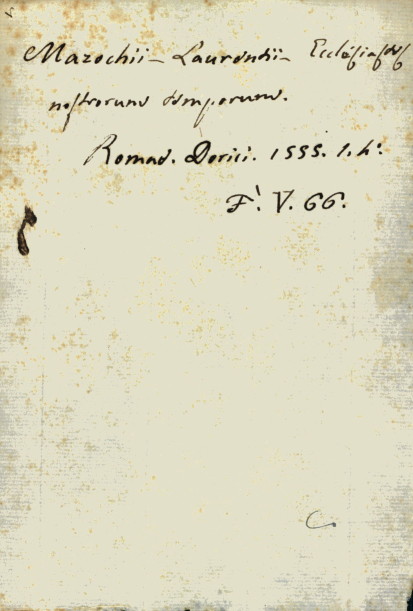 Marochii - Laurentii - Ecclesiastes
nostrorum temporum.
Romae. Dorici. 1555. 1. 4°.
F. V. 66.